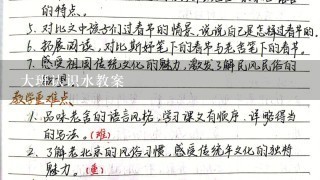 的特点。
5. 对比文中孩子们过春节的情景,说说自己是怎样过春节的.
6. 拓展阅读,对比斯妤笔下的春节与老舍笔下的春节。
7. 感受祖国传统文化的魅力,激发了解民风民俗的
大班认识水教案
教学重难点、
1. 品味老舍的语言风格,学习课文有顺序、详略得当
的写法。(难)
2. 了解老北京的风俗习惯,感受传统年文化的独特
魅力。(重)